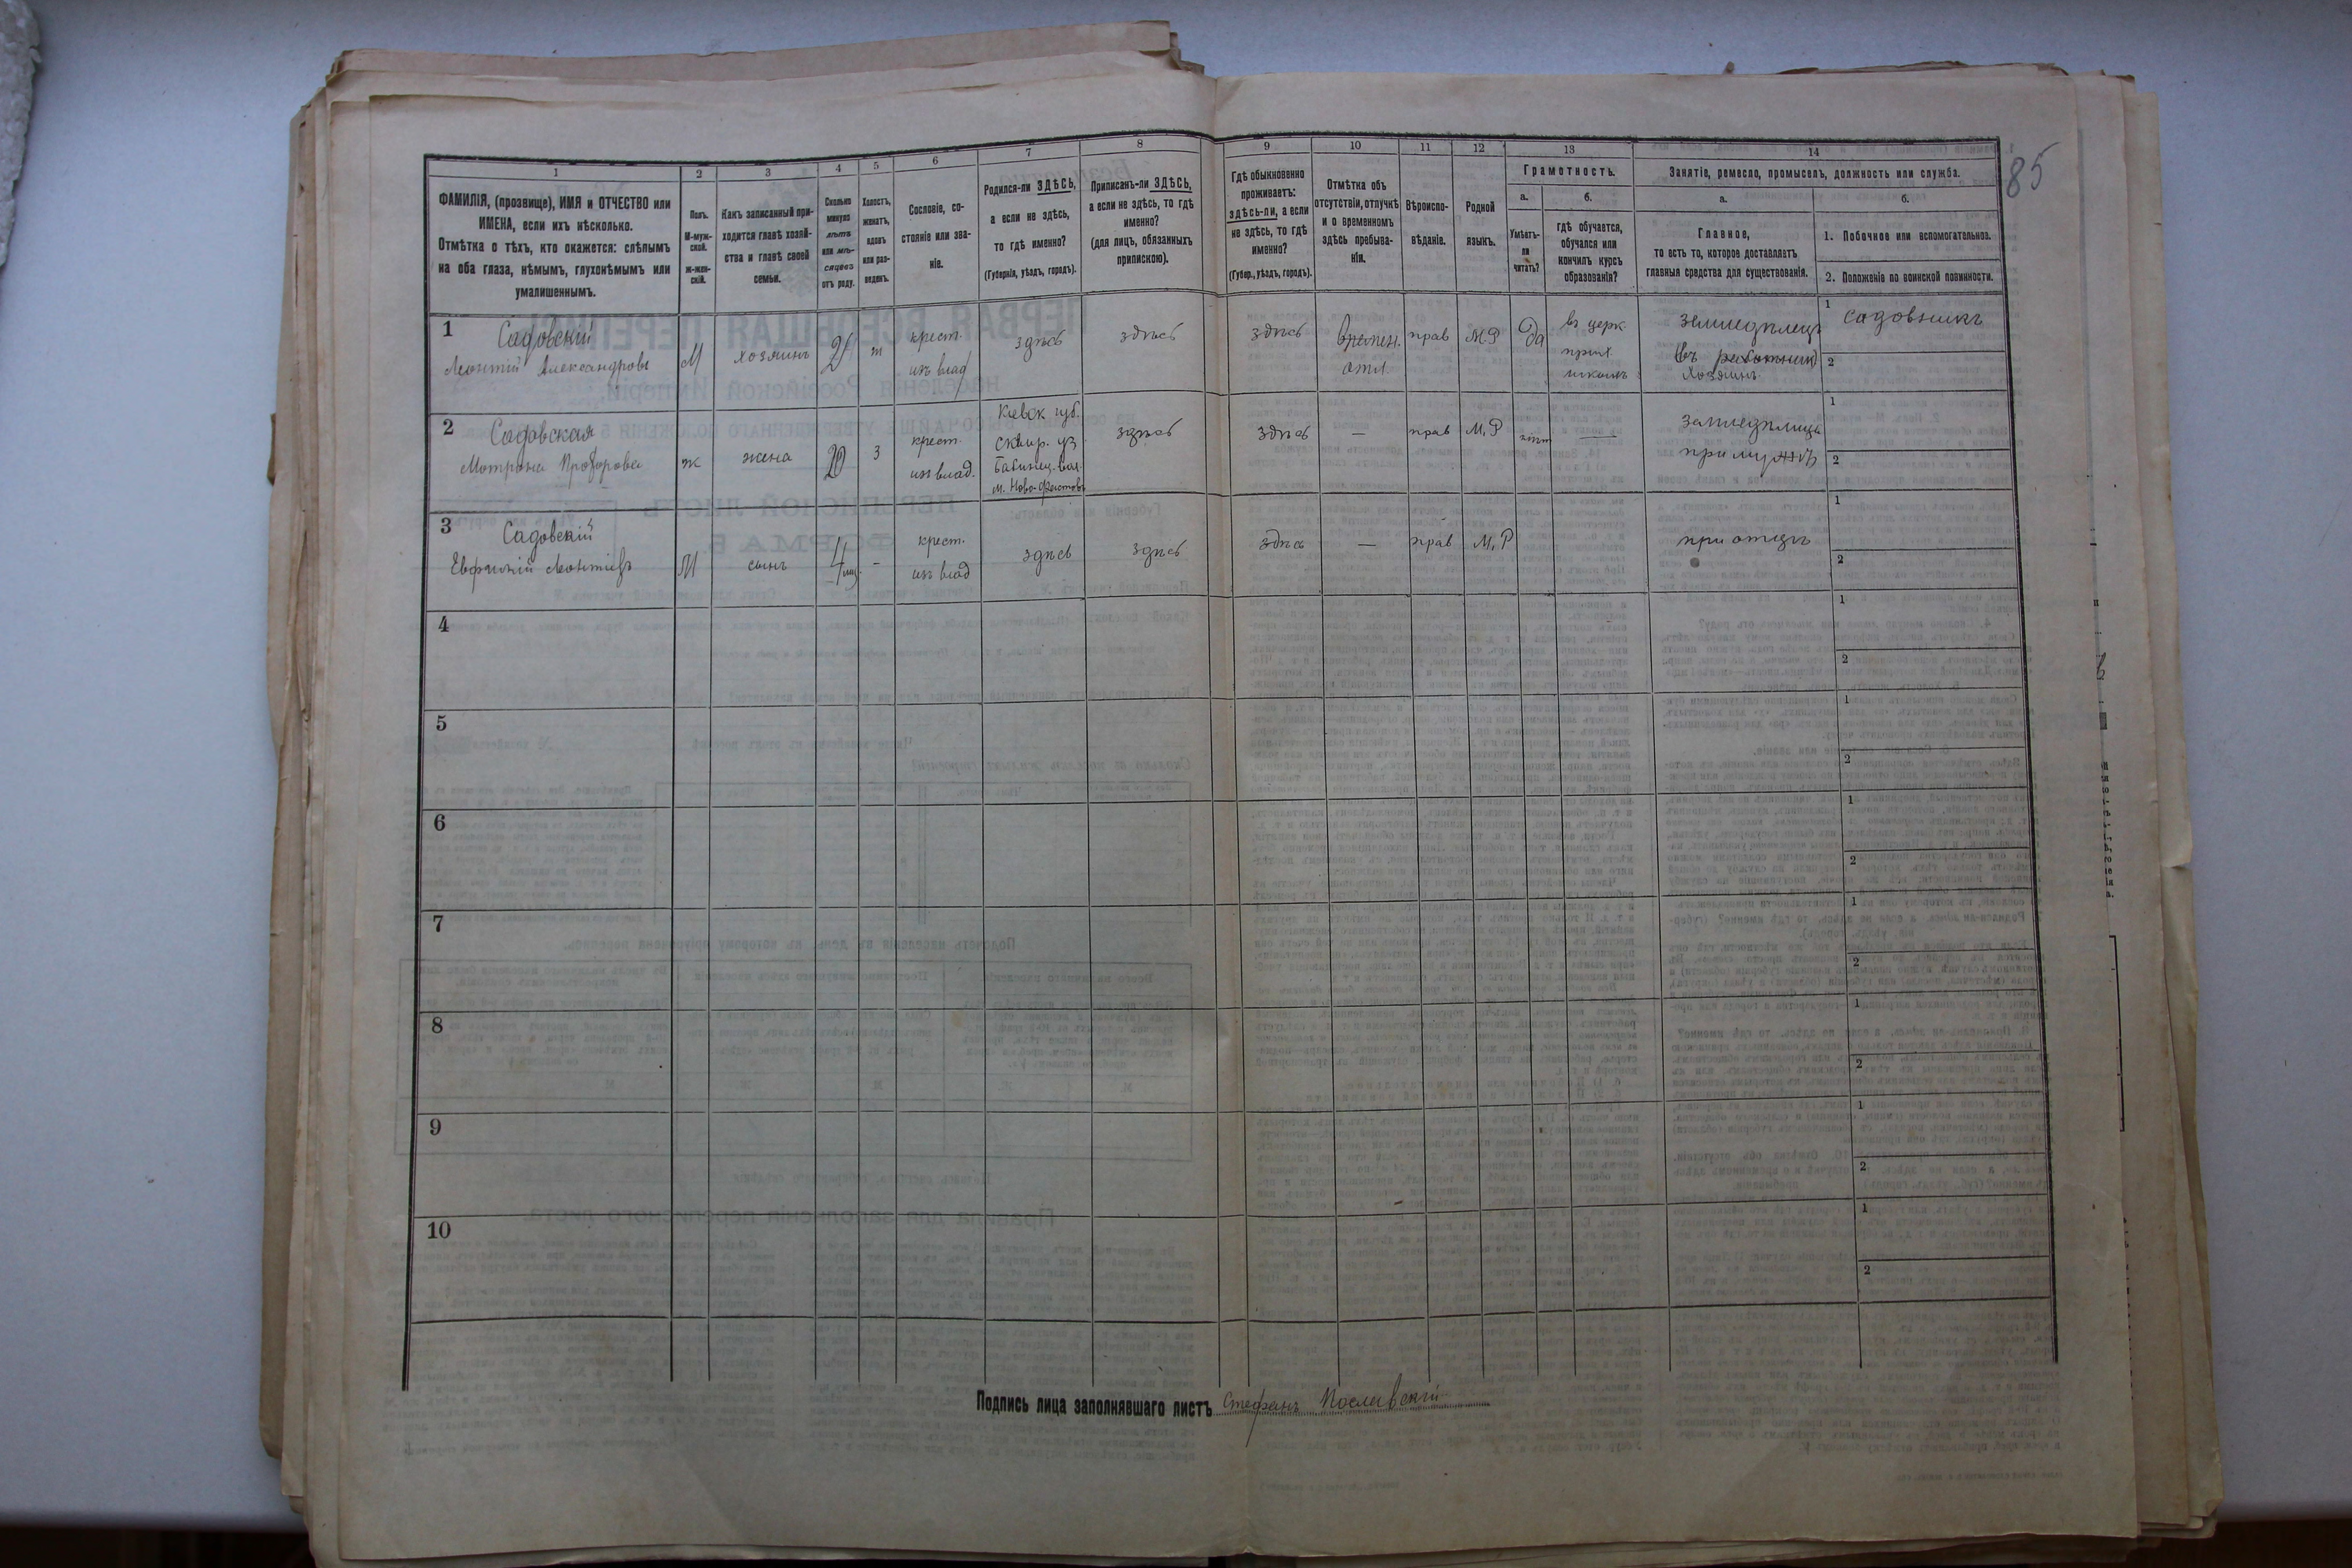 85
1 2 3 4 5 6 7 8 9 10 11 12 13 14
ФАМИЛІЯ, (прозвище), ИМЯ и ОТЧЕСТВО или
ИМЕНА, если ихъ нѣсколько.
Отмѣтка о тѣхъ, кто окажется: слѣпымъ
на оба глаза, нѣмымъ, глухонѣмымъ или
умалишеннымъ.
Полъ.
М-муж-
ской.
ж-жен-
скій.
Какъ записанный при-
ходится главѣ хозяй-
ства и главѣ своей
семьи.
Сколько
минуло
лѣтъ
или мѣ-
сяцевъ
отъ роду.
Холостъ,
женатъ,
вдовъ
или раз-
веденъ.
Сословіе, со-
стояніе или зва-
ніе.
Родился-ли ЗДѢСЬ,
а если не здѣсь,
то гдѣ именно?
(Губернія, уѣздъ, городъ).
Приписанъ-ли ЗДѢСЬ,
а если не здѣсь, то гдѣ
именно?
(для лицъ, обязанныхъ
припискою).
Гдѣ обыкновенно
проживаетъ:
здѣсь-ли, а если
не здѣсь, то гдѣ
именно?
(Губер., уѣздъ, городъ).
Отмѣтка объ
отсутствіи, отлучкѣ
и о временномъ
здѣсь пребыва-
ніи.
Вѣроиспо-
вѣданіе.
Родной
языкъ.
Грамотность.
а.
Умѣетъ-
ли
читать?
б.
гдѣ обучается,
обучался или
кончилъ курсъ
образованія?
Занятіе, ремесло, промыселъ, должность или служба.
а.
Главное,
то есть то, которое доставляетъ
главныя средства для существованія.
б.
1. Побочное или вспомогательное.
2. Положеніе по воинской повинности.
1 Садовскій
Леонтій Александровъ
М
хозяинъ
крест.
из влад
здѣсь
здѣсь
здѣсь
Времен.
отл.
прав
М.Р
Да
въ церк
прих.
школѣ
землед&#1123;лецъ
хозяинъ
1 садовникъ
2
2 Садовская
Мотрона Прохорова
ж
жена
20
З
крест.
из влад.
Киевск губ.
Сквир. уз
здѣсь
здѣсь
—
прав
М.Р
нѣт
—
при мужѣ
1
2
3 Садовскій
Леонтіевъ
М
сынъ
4 мц
-
крест.
из влад
здѣсь
здѣсь
здѣсь
—
прав
М.Р
при отцѣ
1
2
4
1
2
5
1
2
6
1
2
7
1
2
8
1
2
9
1
2
10
1
2
Подпись лица заполнявшаго листъ Стефанъ